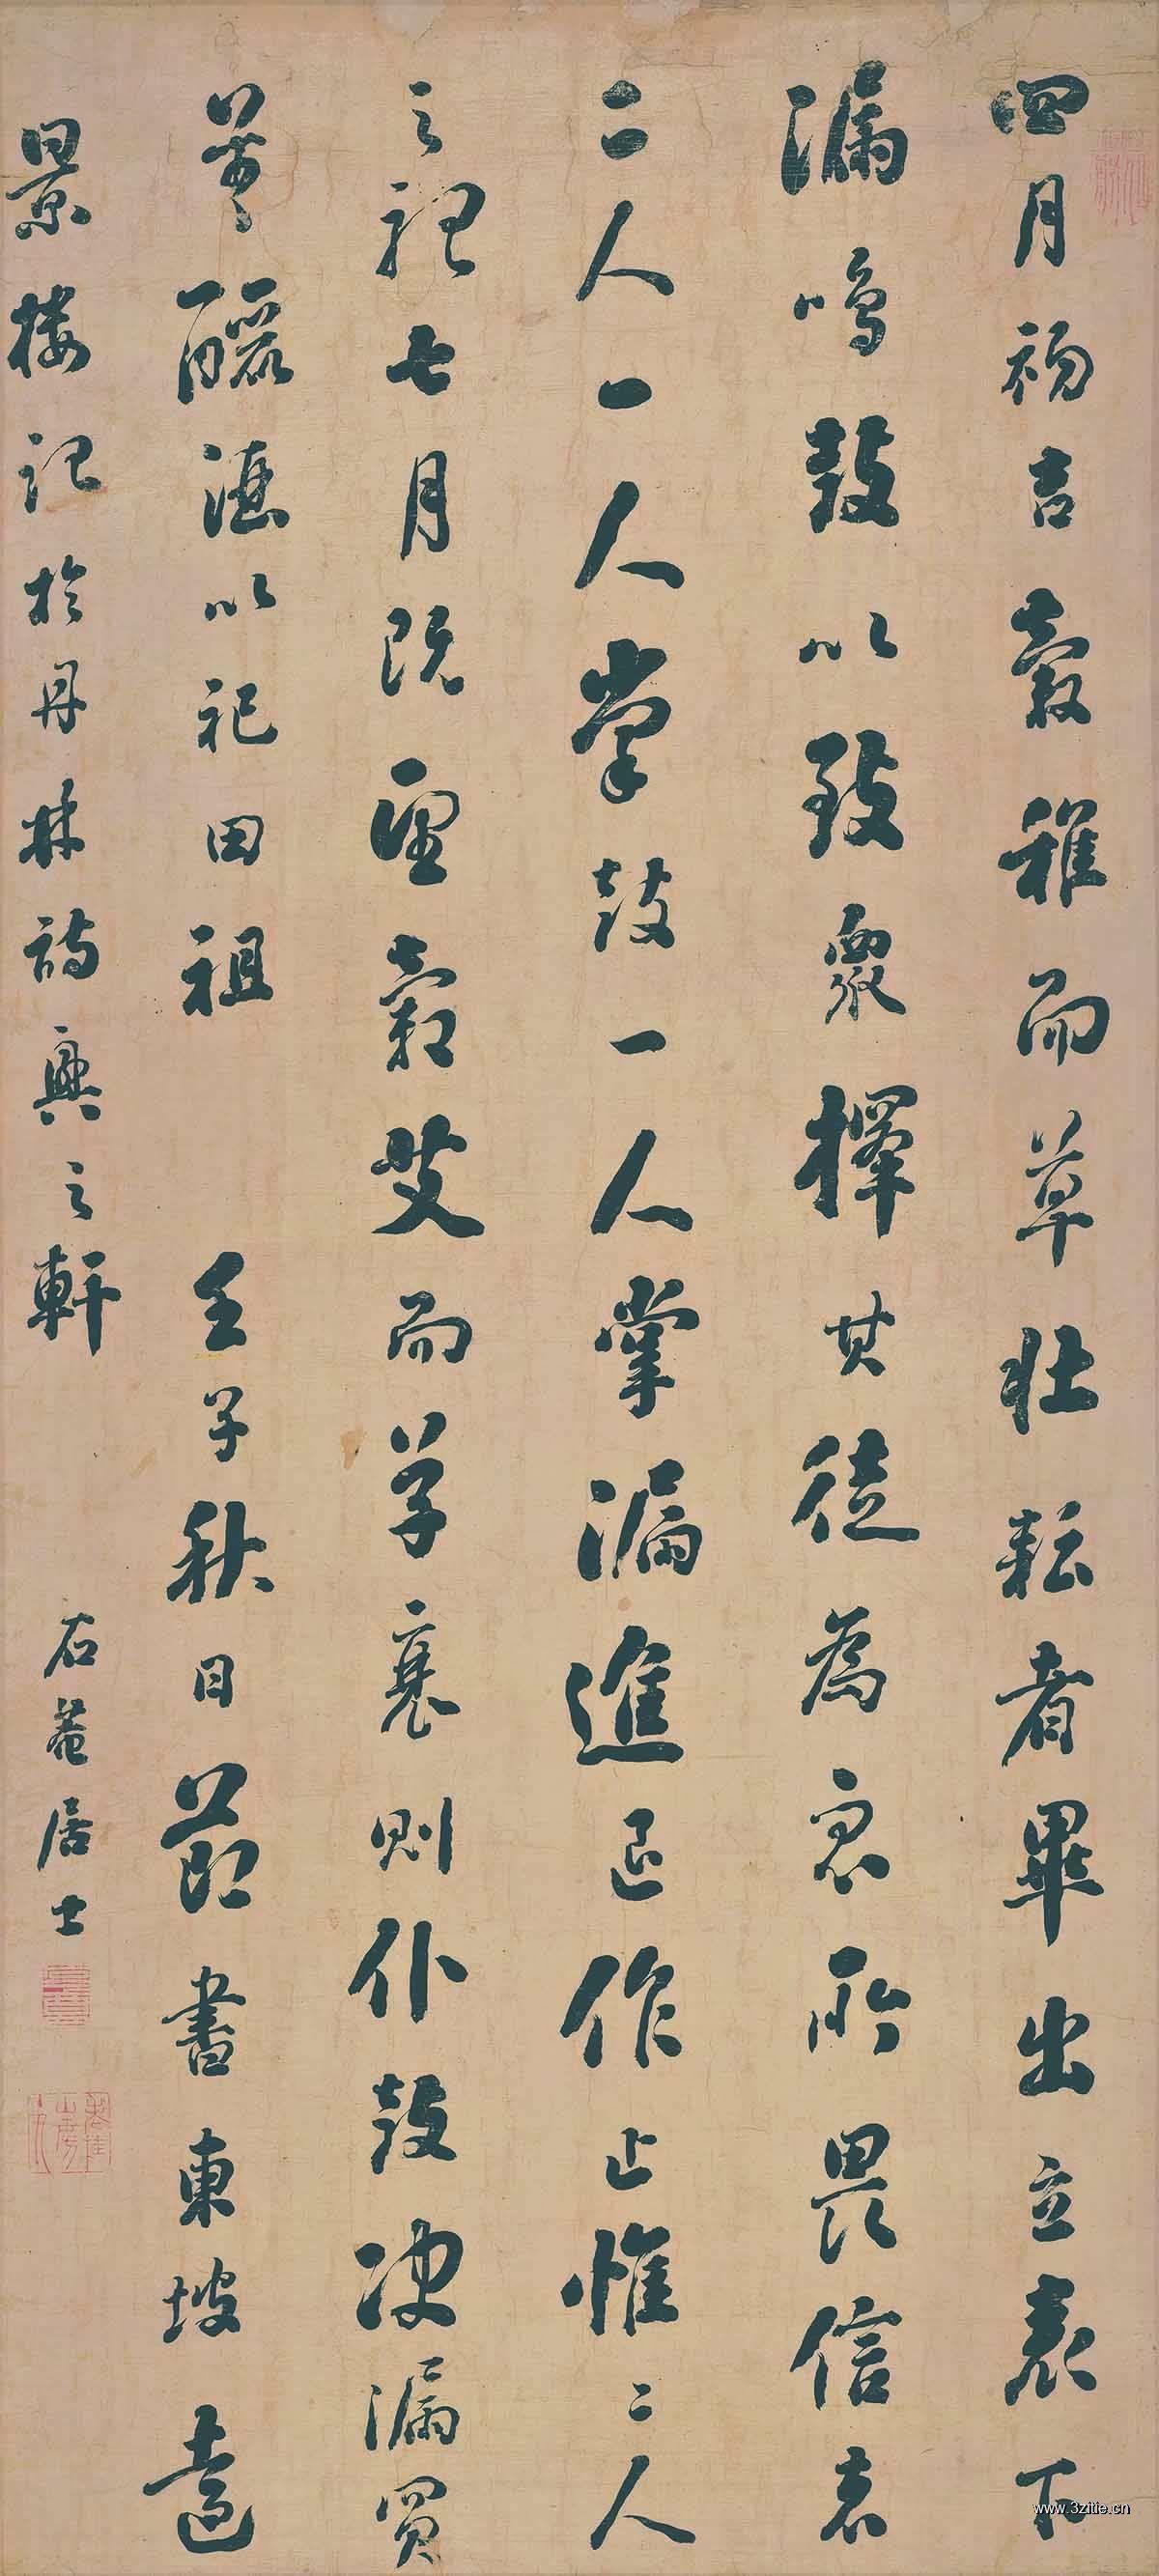 四月初吉穀稚而草壯耘者畢出立表下
漏鳴鼓以致眾擇其徒為眾所畏信者
二人一人掌鼓一人掌漏進退作止惟二人
之聽七月既望穀艾而草衰則仆鼓決漏買
羊釃酒以祀田祖 壬子秋日節書東坡遠
景樓記於丹林詩興之軒 石菴居士
www.3zitie.cn